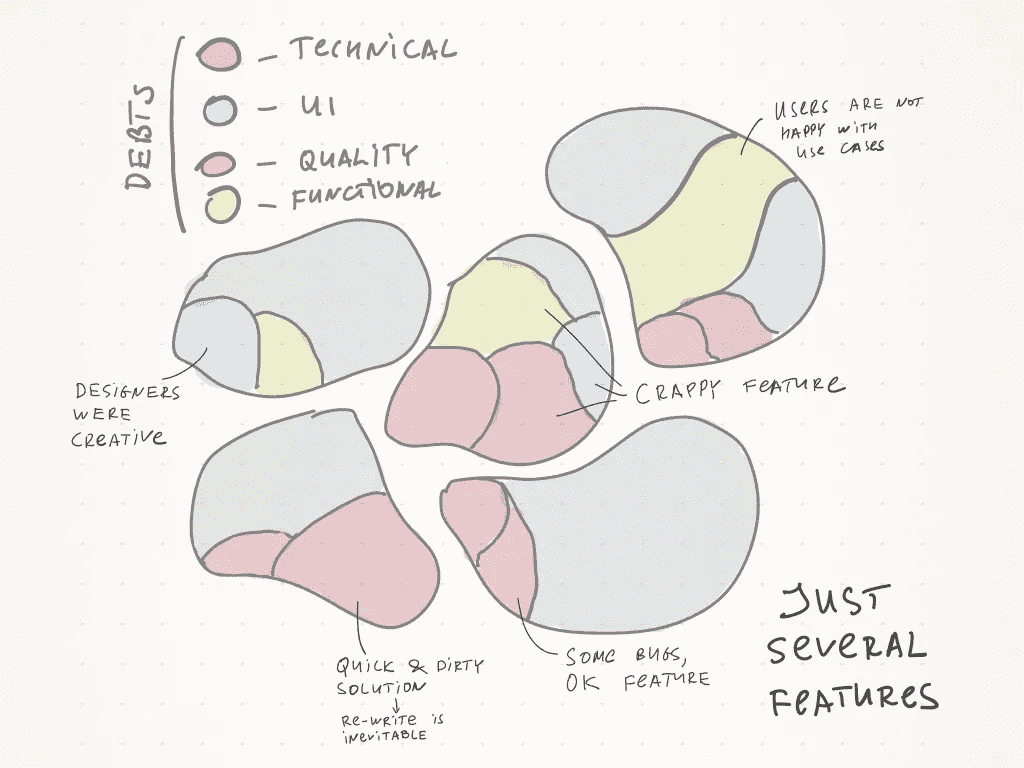 DEBTS
- TECHNICAL
- UI
- QUALITY
- FUNCTIONAL
USERS ARE NOT
HAPPY WITH
USE CASES
DESIGNERS
WERE
CREATIVE
CRAPPY FEATURE
QUICK & DIRTY
SOLUTION
↓
RE-WRITE IS
INEVITABLE
SOME BUGS,
OK FEATURE
JUST
SEVERAL
FEATURES